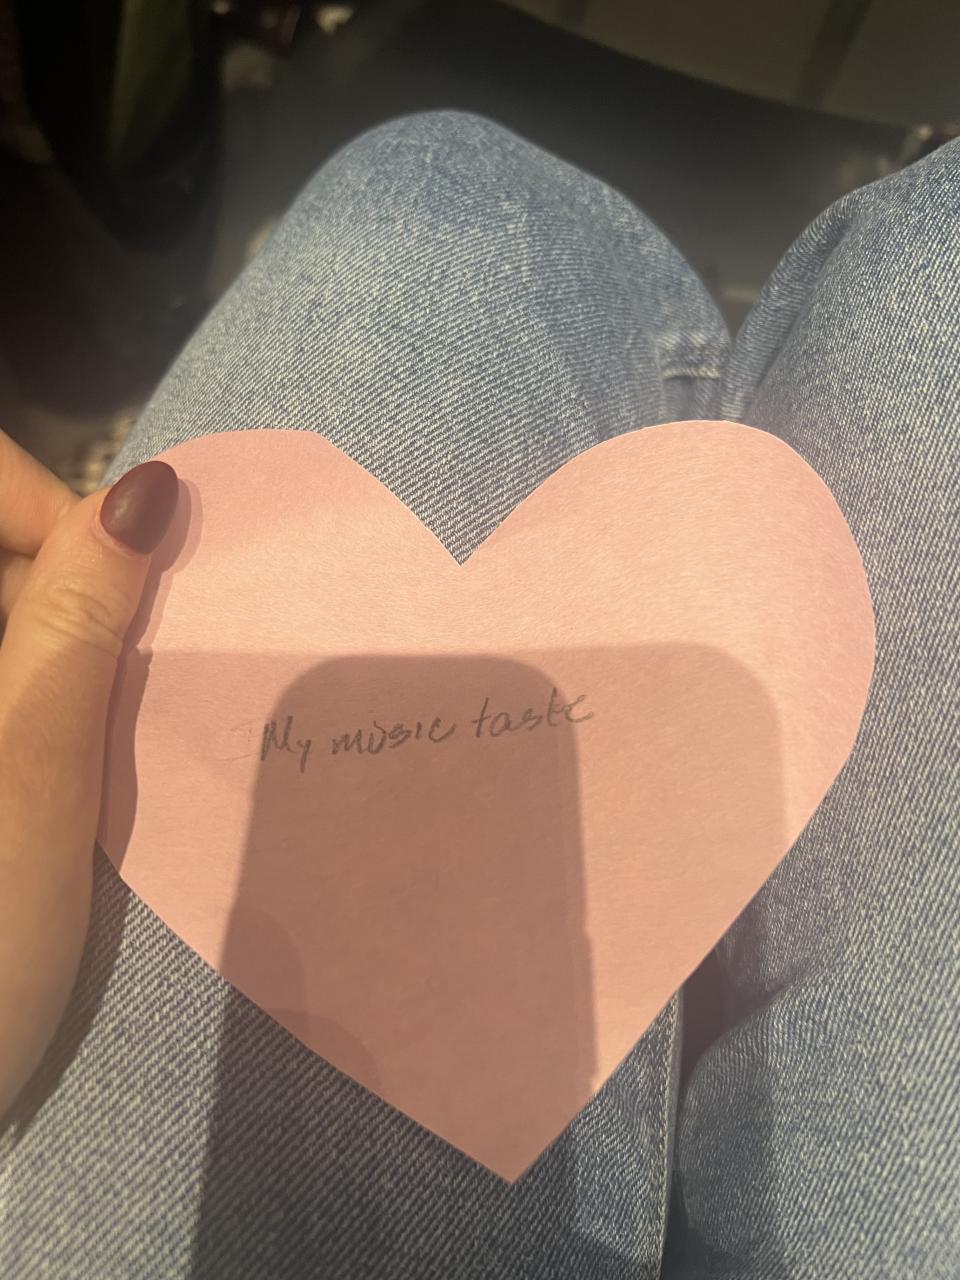 My music taste